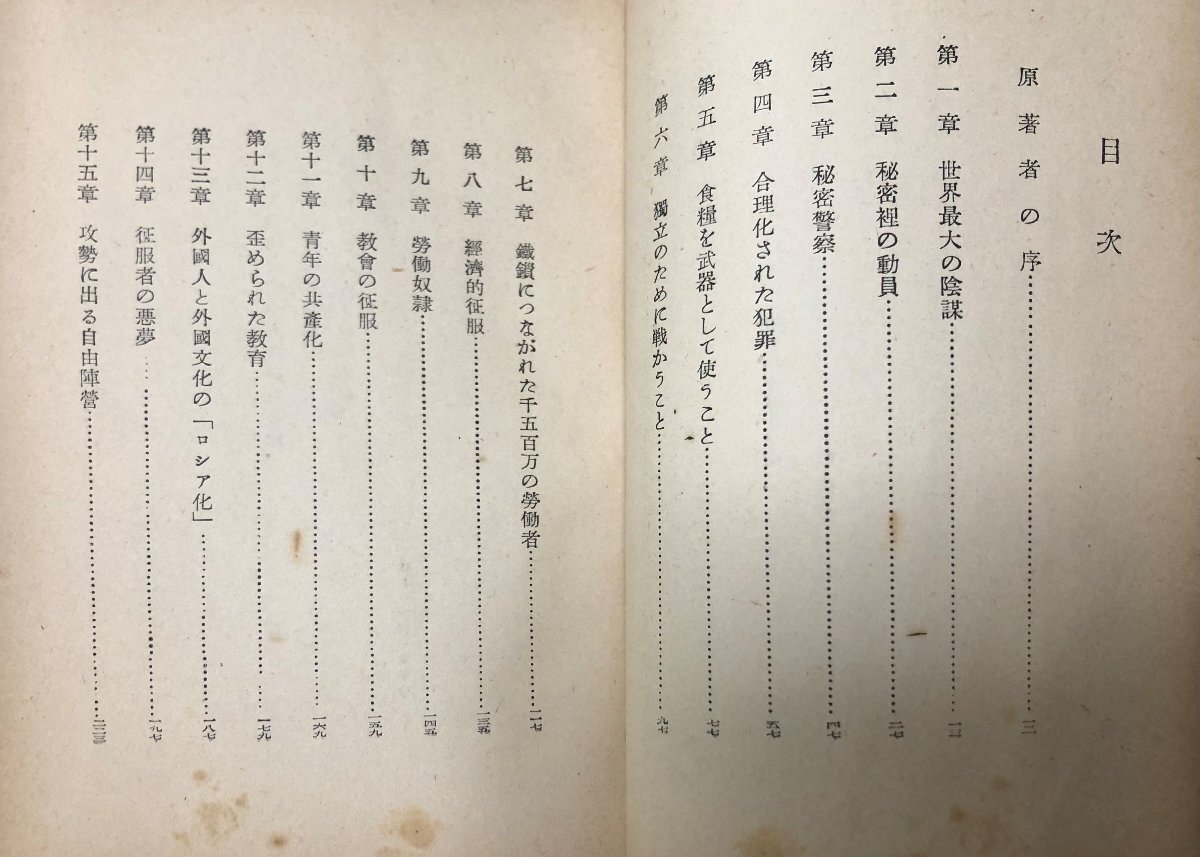 目次
原著者の序……………………………二
第一章 世界最大の陰謀……………………………一三
第二章 秘密裡の動員……………………………二七
第三章 秘密警察……………………………四七
第四章 合理化された犯罪……………………………五七
第五章 食糧を武器として使うこと……………………………七七
第六章 獨立のために戦かうこと……………………………九七
第七章 鐵鎖につながれた千五百万の勞働者……………………………一一七
第八章 經濟的征服……………………………一三五
第九章 勞働奴隷……………………………一四五
第十章 教會の征服……………………………一五九
第十一章 青年の共產化……………………………一六九
第十二章 歪められた教育……………………………一七九
第十三章 外國人と外國文化の「ロシア化」……………………………一八七
第十四章 征服者の悪夢……………………………一九七
第十五章 攻勢に出る自由陣營……………………………二一三